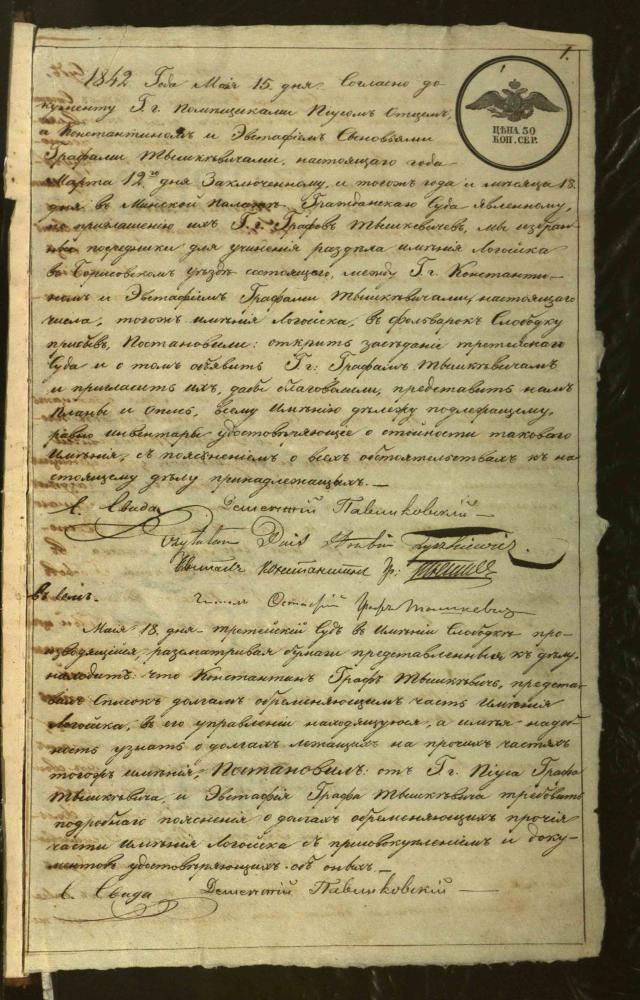 1.
ЦѢНА 50
КОП. СЕР.
1842 Года Мая 15 дня Согласно до
кументу Г. г. Помѣщиками Піусомъ Отцемъ,
а Константиномъ и Эвстафіемъ Сыновьями
Графами Тышкѣвичами, настоящаго года
Марта 12го дня Заключенному, и тогожъ года и мѣсяца 18.
дня въ Минской Палатѣ Гражданскаго Суда явленному,
по приглашенію ихъ Г. г. Графовъ Тышкевичевъ, мы избран
ные посредники для учиненія раздѣла имѣнія Логойска
въ Борисовскомъ уѣздѣ состоящаго, между Г. г. Константи-
номъ и Эвстафіемъ Графами Тышкѣвичами, настоящаго
числа, тогожъ имѣнія Логойска, въ фольварокъ Слободку
прибывъ, Постановили: открыть засѣданіе третейскаго
Суда и о томъ объявить Г. г: Графамъ Тышкѣвичамъ
и пригласить ихъ, дабы благоволили, представить намъ
планы и опись, всему имѣнію дѣлежу подлежащему,
равно инвентарь удостовѣряющіе о стойности таковаго
имѣнія, съ поясненіемъ о всѣхъ обстоятельствахъ къ на
стоящему дѣлу принадлежащихъ. —
Дементій Павликовскій —
czytałem Pius Hrabia Tyszkiewicz.
Читалъ Константинъ Гр:
Читал Остафій Графъ Тышкевичъ
Мая 18. дня третейскій Судъ въ Имѣніи Слободкѣ про-
изводящійся, разсматривая бумаги представленныя къ дѣлу,
находитъ: что Константинъ Графъ Тышкѣвичъ, предста
вилъ Список долгамъ обременяющимъ часть Имѣнія
Логойска, въ его управленіи находящуюся, а имѣя надоб
ность узнать о долгахъ лежащихъ на прочихъ частяхъ
тогожъ имѣнія, Постановилъ: отъ Г. г. Піуса Графа
Тышкѣвича, и Эвстафія Графа Тышкѣвича требовать
подробнаго поясненія о долгахъ обременяющихъ прочія
части имѣнія Логойска съ присовокупленіемъ и доку-
ментовъ удостовѣряющихъ объ оныхъ. —
Дементій Павликовскій —